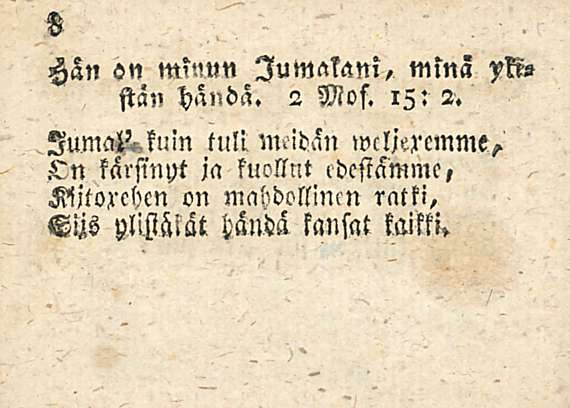 8
Hän on minun Jumalani, minä yli-
stän händä. 2 Mos. 15: 2.
Jumal' kuin tuli meidän weljexemme,
On kärsinyt ja kuollut edestämme,
Kijtoxehen on mahdollinen ratki,
Siis ylistäkät händä kansat kaikki.